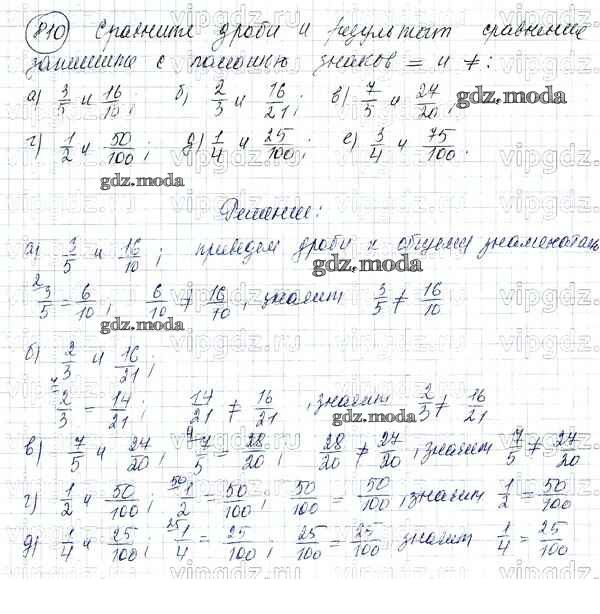 810 Сравните дроби и результат сравнения
запишите с помощью знаков = и ≠:
а) 3/5 и 16/10; б) 2/3 и 16/21; в) 7/5 и 24/20;
г) 1/2 и 50/100; д) 1/4 и 25/100; е) 3/4 и 75/100.
gdz.moda
gdz.moda
Решение:
а) 3/5 и 16/10; приведем дроби к общему знаменателю
gdz.moda
2 3/5 = 6/10, 6/10 ≠ 16/10, значит 3/5 ≠ 16/10
gdz.moda
б) 2/3 и 16/21;
7 2/3 = 14/21; 14/21 ≠ 16/21, значит 2/3 ≠ 16/21
gdz.moda
в) 7/5 и 24/20; 4 7/5 = 28/20; 28/20 ≠ 24/20, значит 7/5 ≠ 27/20
г) 1/2 и 50/100; 50 1/2 = 50/100; 50/100 = 50/100, значит 1/2 = 50/100
д) 1/4 и 25/100; 25 1/4 = 25/100; 25/100 = 25/100 значит 1/4 = 25/100
vipgdz.ru